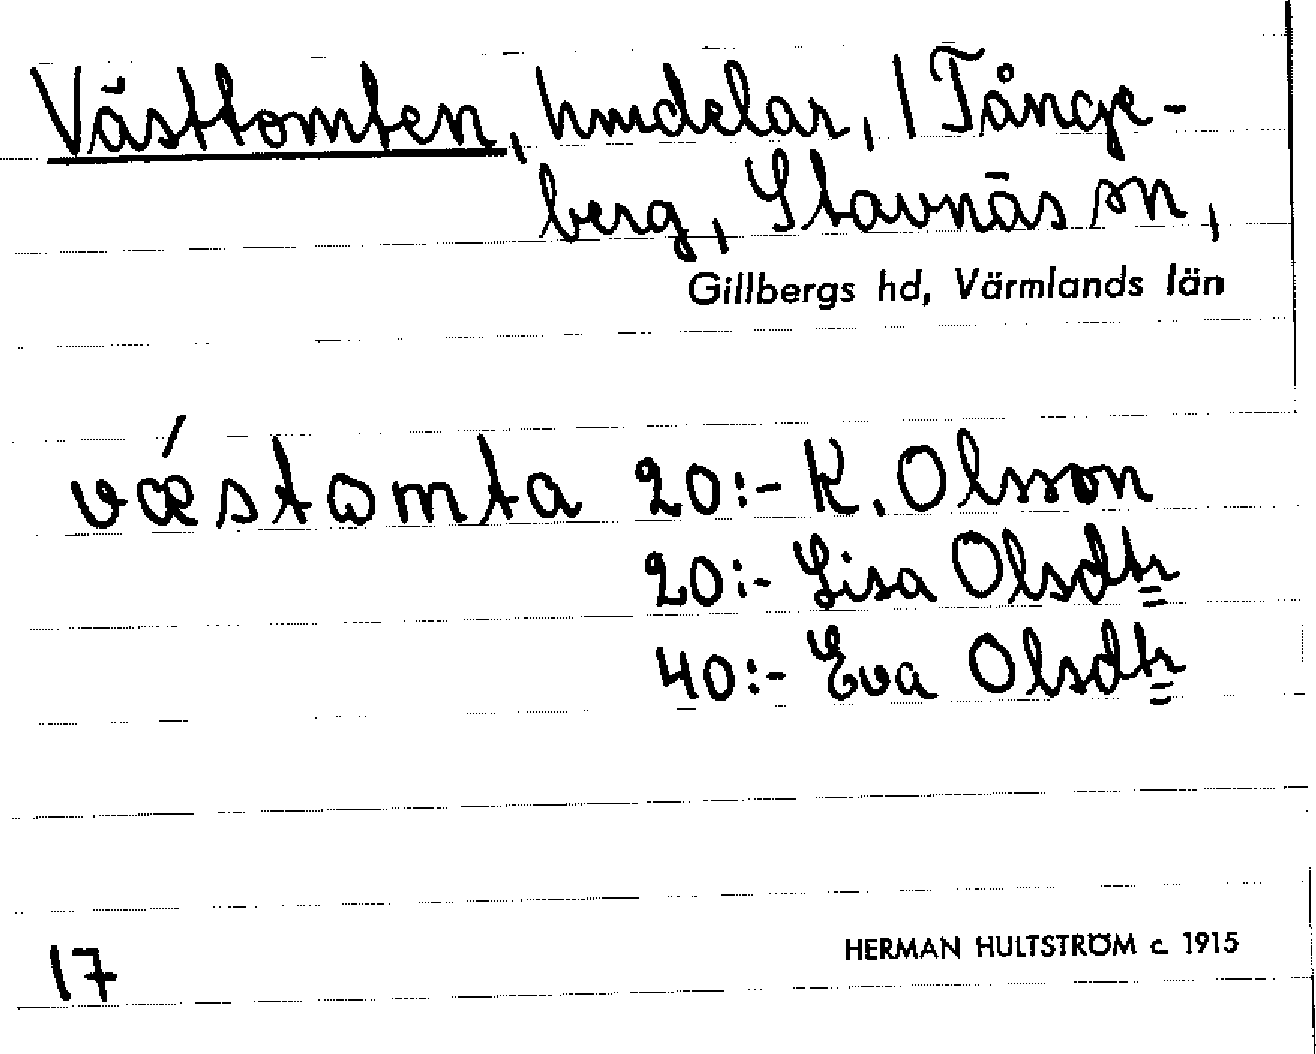 Västtomten, hmdelar, 1 Tånge-
berg, Stavnäs sn,
Gillbergs hd, Värmlands län
væ´stωmta 20:- K. Olsson
20:- Lisa Olsdtr
40:- Eva Olsdtr
17
HERMAN HULTSTRÖM c. 1915